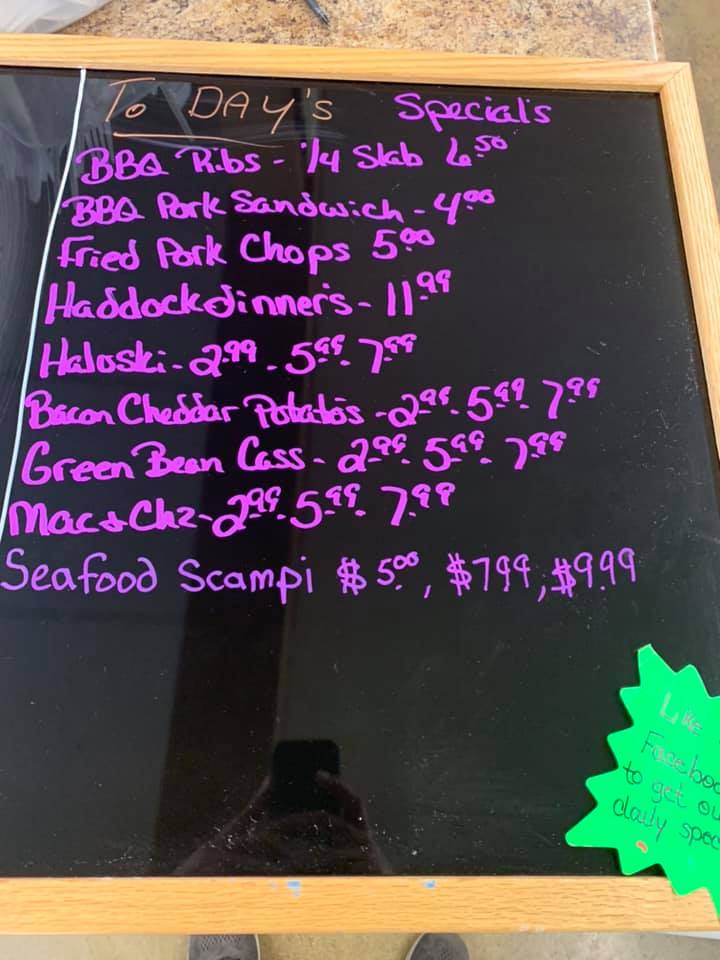 To DAY's Specials
BBQ Ribs - 1/4 Slab 6.50
BBQ Pork Sandwich - 4.00
Fried Pork Chops 5.00
Haddock dinners - 11.99
Haluski - 2.99 - 5.99 - 7.99
Bacon Cheddar Potato's - 2.99 - 5.99 - 7.99
Green Bean Cass - 2.99 - 5.99 - 7.99
Mac & Chz - 2.99 - 5.99 - 7.99
Seafood Scampi $5.00, $7.99, $9.99
Like
Faceboo
to get ou
daily spec